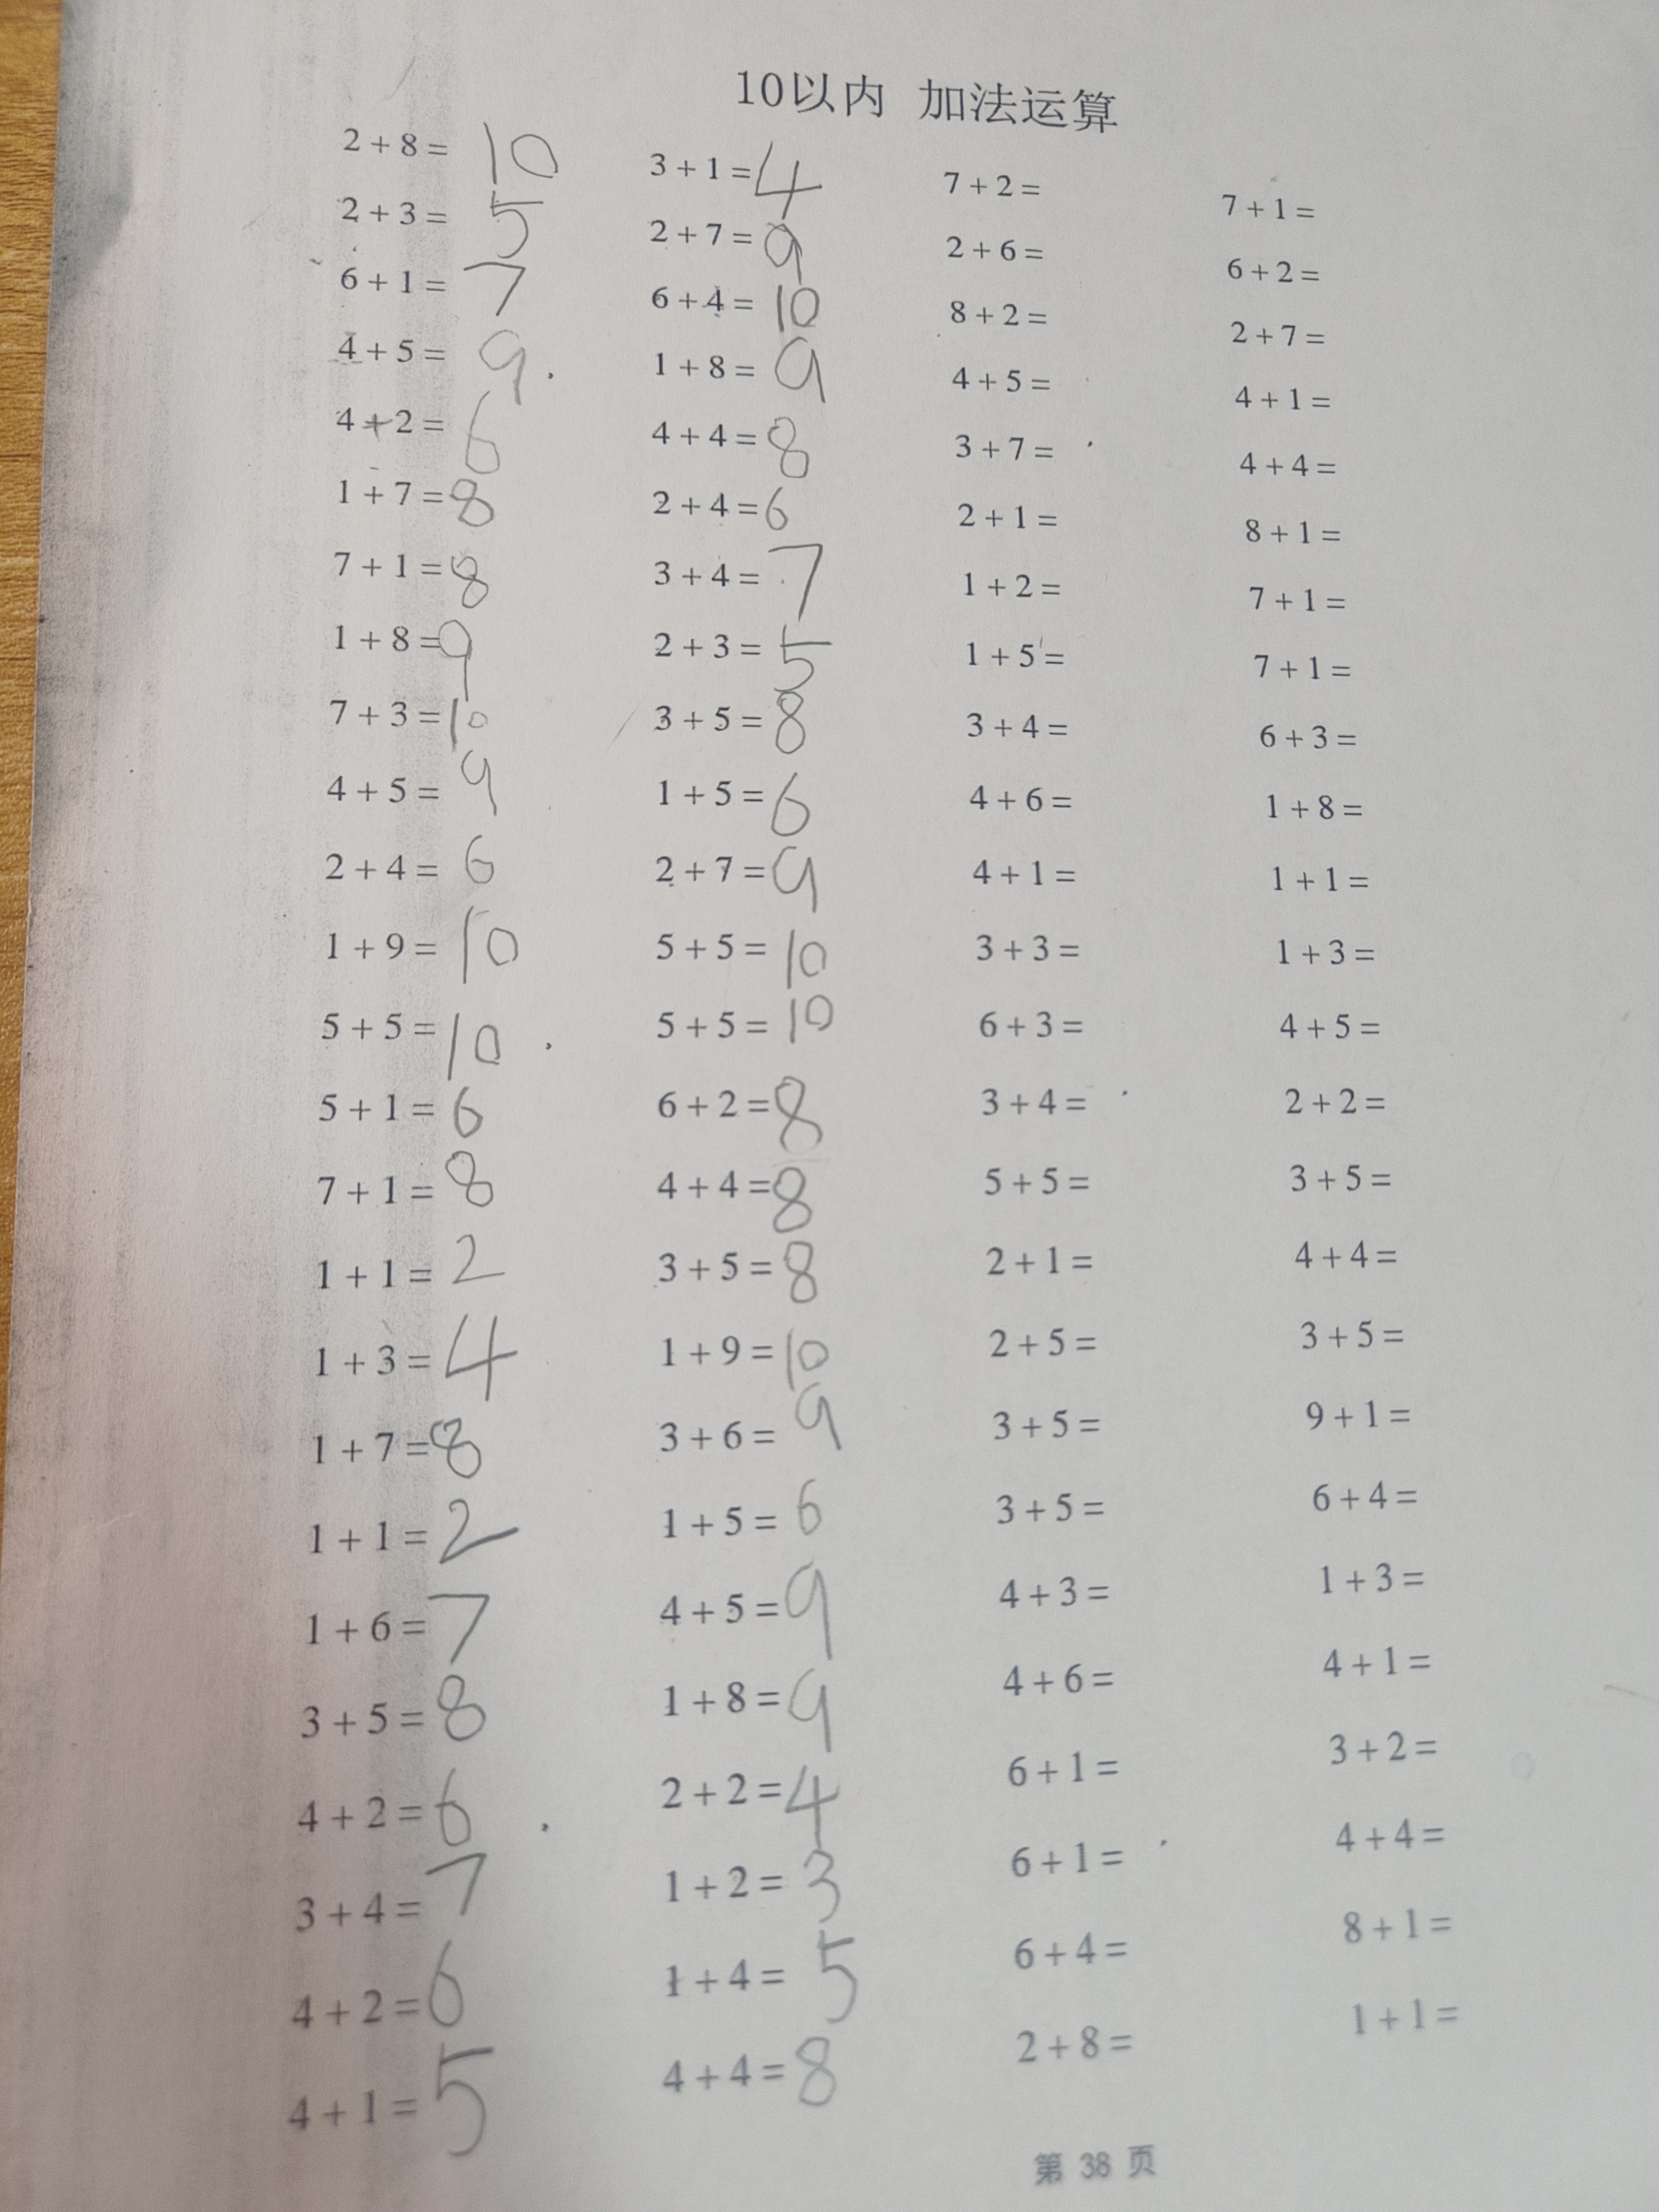 10以内 加法运算
2 + 8 = 10
2 + 3 = 5
6 + 1 = 7
4 + 5 = 9
4 + 2 = 6
1 + 7 = 8
7 + 1 = 8
1 + 8 = 9
7 + 3 = 10
4 + 5 = 9
2 + 4 = 6
1 + 9 = 10
5 + 5 = 10
5 + 1 = 6
7 + 1 = 8
1 + 1 = 2
1 + 3 = 4
1 + 7 = 8
1 + 1 = 2
1 + 6 = 7
3 + 5 = 8
4 + 2 = 6
3 + 4 = 7
4 + 2 = 6
4 + 1 = 5
3 + 1 = 4
2 + 7 = 9
6 + 4 = 10
1 + 8 = 9
4 + 4 = 8
2 + 4 = 6
3 + 4 = 7
2 + 3 = 5
3 + 5 = 8
1 + 5 = 6
2 + 7 = 9
5 + 5 = 10
5 + 5 = 10
6 + 2 = 8
4 + 4 = 8
3 + 5 = 8
1 + 9 = 10
3 + 6 = 9
1 + 5 = 6
4 + 5 = 9
1 + 8 = 9
2 + 2 = 4
1 + 2 = 3
1 + 4 = 5
4 + 4 = 8
7 + 2 =
2 + 6 =
8 + 2 =
4 + 5 =
3 + 7 =
2 + 1 =
1 + 2 =
1 + 5 =
3 + 4 =
4 + 6 =
4 + 1 =
3 + 3 =
6 + 3 =
3 + 4 =
5 + 5 =
2 + 1 =
2 + 5 =
3 + 5 =
3 + 5 =
4 + 3 =
4 + 6 =
6 + 1 =
6 + 1 =
6 + 4 =
2 + 8 =
7 + 1 =
6 + 2 =
2 + 7 =
4 + 1 =
4 + 4 =
8 + 1 =
7 + 1 =
7 + 1 =
6 + 3 =
1 + 8 =
1 + 1 =
1 + 3 =
4 + 5 =
2 + 2 =
3 + 5 =
4 + 4 =
3 + 5 =
9 + 1 =
6 + 4 =
1 + 3 =
4 + 1 =
3 + 2 =
4 + 4 =
8 + 1 =
1 + 1 =
第 38 页